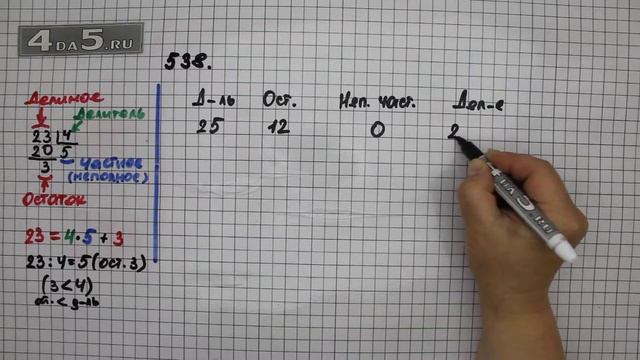 4DA5.RU
538.
Делимое
Делитель
23 4
20 5
3
частное
(неполное)
Остаток
23 = 4·5 + 3
23 : 4 = 5 (ост. 3)
(3 < 4)
ост. < д-ль
Д-ль Ост. Неп. част. Дел-е
25 12 0 2